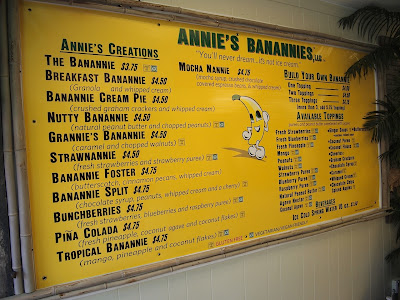 ANNIE'S BANANNIES, LLC
"You'll never dream...it's not ice cream."
ANNIE'S CREATIONS
THE BANANNIE $3.75
BREAKFAST BANANNIE $4.50
(Granola and whipped cream)
BANANNIE CREAM PIE $4.50
(crushed graham crackers and whipped cream)
NUTTY BANANNIE $4.50
(natural peanut butter and chopped peanuts)
GRANNIE'S BANANNIE $4.50
(caramel and chopped walnuts)
STRAWNANNIE $4.50
(fresh strawberries and strawberry puree)
BANANNIE FOSTER $4.75
(butterscotch, cinnamon pecans, whipped cream)
BANANNIE SPLIT $4.75
(chocolate syrup, peanuts, whipped cream and a cherry)
BUNCHBERRIES $4.75
(fresh strawberries, blueberries and raspberry puree)
PIÑA COLADA $4.75
(fresh pineapple, coconut agave and coconut flakes)
TROPICAL BANANNIE $4.75
(mango, pineapple and coconut flakes)
MOCHA NANNIE $4.75
(mocha syrup, crushed chocolate
covered espresso beans, & whipped cream)
GLUTEN FREE
BUILD YOUR OWN BANANNIE
One Topping
Two Toppings
Three Toppings
AVAILABLE TOPPINGS
Fresh Strawberries
Fresh Blueberries
Fresh Pineapple
Mango
Pecans
Peanuts
Walnuts
Strawberry Puree
Blueberry Puree
Raspberry Puree
Natural Peanut Butter
Agave Nectar
Coconut Agave
BEVERAGES
ICE COLD SPRING WATER